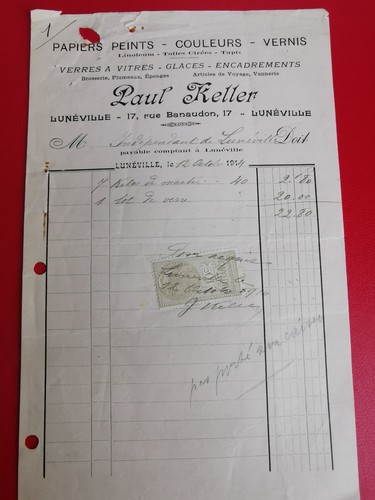 1/
PAPIERS PEINTS - COULEURS - VERNIS
Linoleum - Toiles Cirées - Tapis
VERRES A VITRES - GLACES - ENCADREMENTS
Brosserie, Plumeaux, Éponges Articles de Voyage, Vannerie
Paul Keller
LUNÉVILLE - 17, rue Banaudon, 17 - LUNÉVILLE
M Indépendant de Lunéville Doit
payable comptant à Lunéville
LUNÉVILLE, le 12 Octobre 1914
7 Kilos de mastic 40 2.80
1 lot de verre 20.00
22.80
Pour acquit
Lunéville le
Octobre
Keller
pas porté